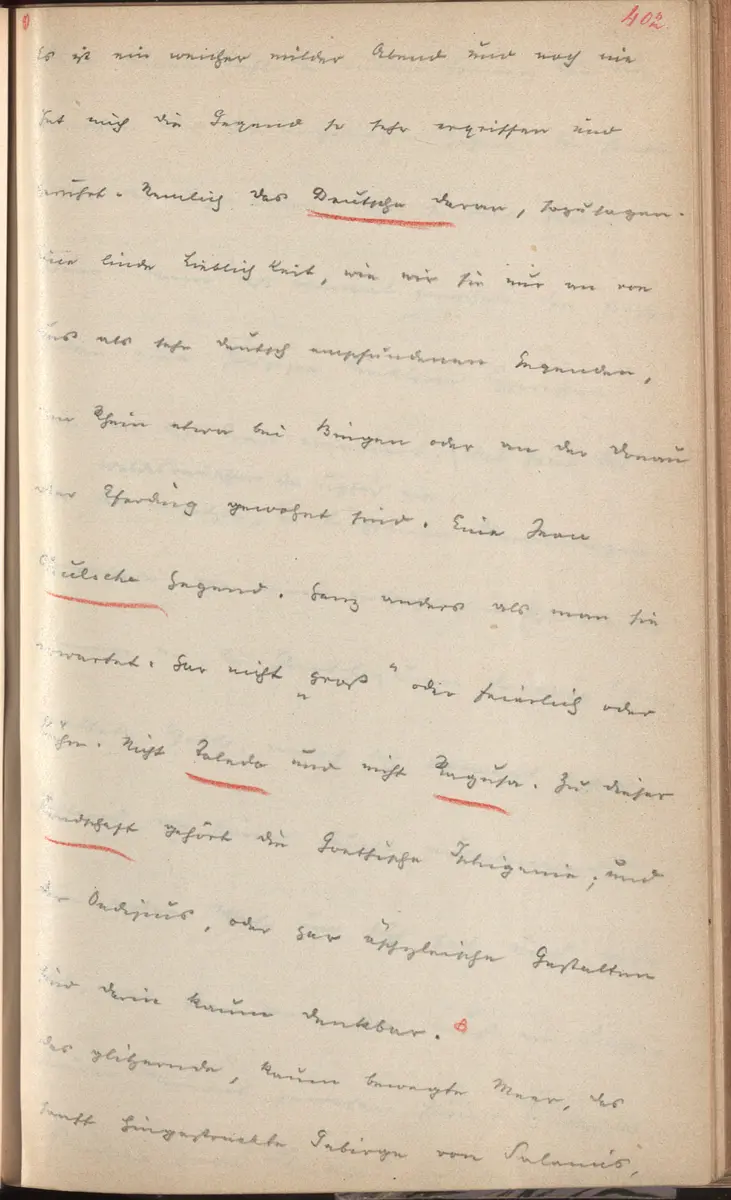 402.
Es ist ein weicher milder Abend und noch nie
hat mich die Gegend so sehr ergriffen und
berührt. Nemlich das Deutsche daran, sozusagen.
eine linde Lieblichkeit, wie wir sie nur an von
uns als sehr deutsch empfundenen Gegenden,
am Rhein etwa bei Bingen oder an der Donau
gewohnt sind. Eine
deutsche Gegend. Ganz anders als man sie
erwartet. Gar nicht „groß“ oder feierlich oder
kühn. Nicht Toledo und nicht Ragusa. Zu dieser
Landschaft gehört die Goethische Iphigenie; und
der Oedipus, oder gar äschyleische Gestalten
sind darin kaum denkbar.
das glitzernde, kaum bewegte Meer, das
sanft hingestreckte Gebirge von Salamis,